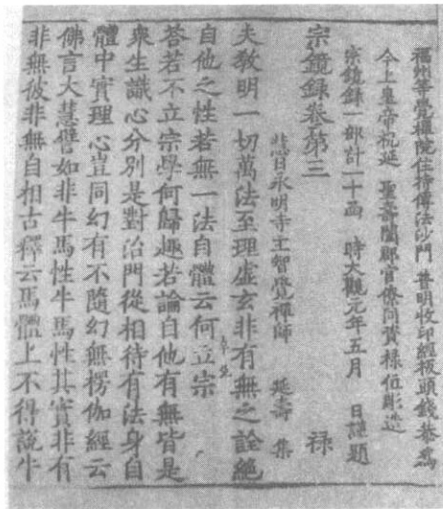 福州等覺禪院住持傳法沙門 普明收印經板頭錢恭爲
今上皇帝祝延 聖壽闔郡官僚同資祿位彫造
宗鏡録一部計一十函 時大觀元年五月 日謹題
宗鏡録卷第三 祿
慧日永明寺主智覺禪師 延壽 集
夫敎明一切萬法至理虛玄非有無之詮絶
自他之性若無一法自體云何立宗
荅若不立宗學何歸趣若論自他有無皆是
衆生識心分別是對治門從相待有法身自
體中實理心豈同幻有不隨幻無楞伽經云
佛言大慧譬如非牛馬性牛馬性其實非有
非無彼非無自相古釋云馬體上不得說牛